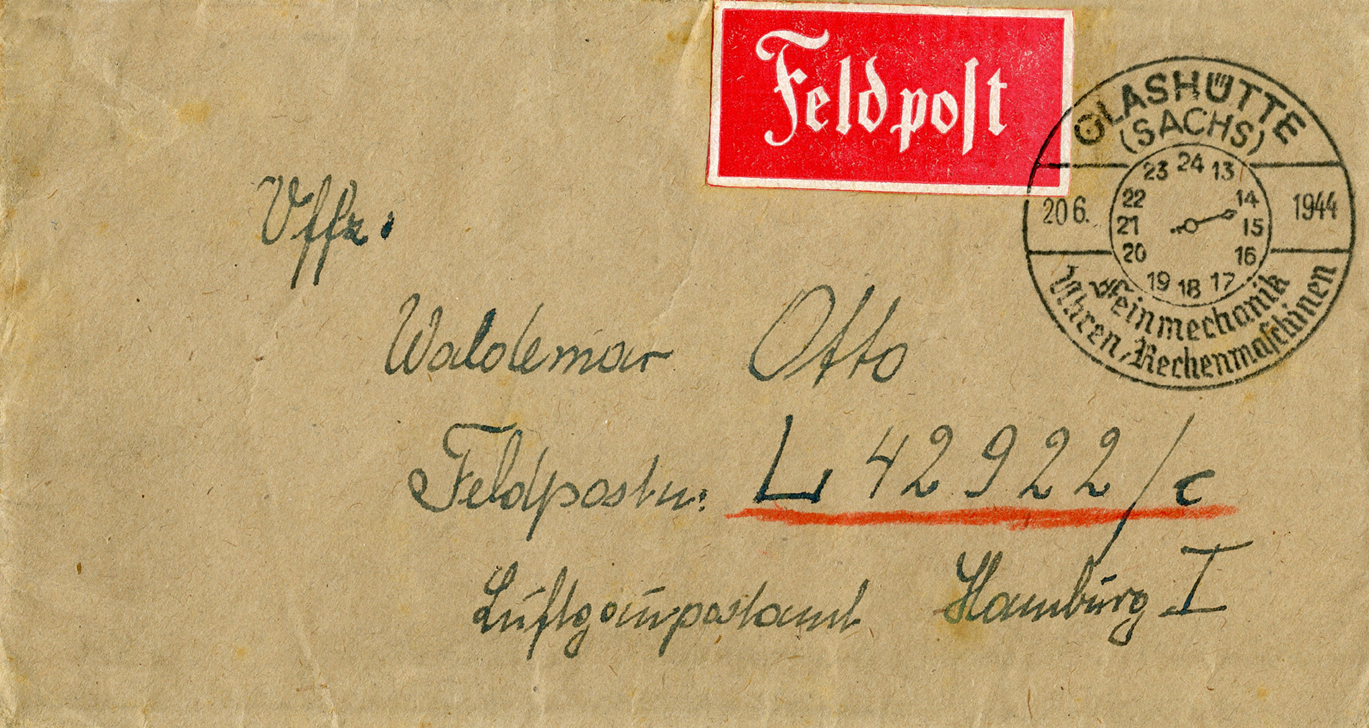 Feldpost
GLASHÜTTE
(SACHS)
23 24 13
22 14
20 6. 1944
21 15
20 16
19 18 17
Feinmechanik
Uhren, Rechenmaschinen
Uffz.
Waldemar Otto
Feldpostn: L 42922/c
Luftgaupostamt Hamburg I